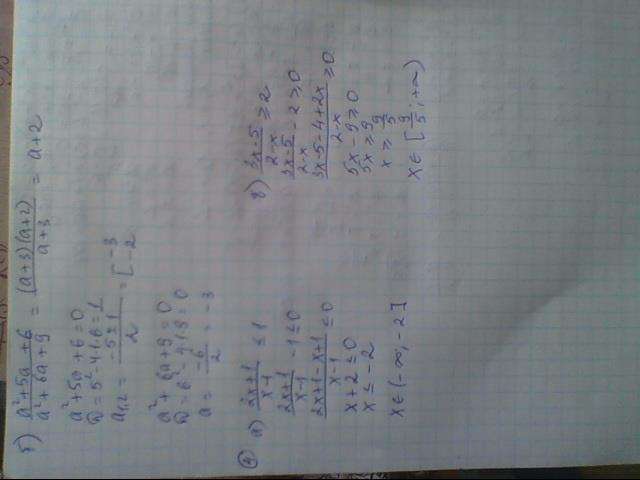 б) (a²+5a+6)/(a²+6a+9) = ((a+3)(a+2))/(a+3) = a+2
a²+5a+6=0
D=5²-4·1·6=1
a₁,₂ = (-5±1)/2 = [-3 -2
a²+6a+9=0
D=6²-4·1·9=0
a = -6/2 = -3
④ а) (2x+1)/(x-1) ≤ 1
(2x+1)/(x-1) -1≤0
(2x+1-x+1)/(x-1) ≤0
x+2≤0
x≤-2
x∈(-∞;-2]
(3x-5)/(2-x) ≥2
(3x-5)/(2-x) -2≥0
(3x-5-4+2x)/(2-x) ≥0
5x-9≥0
5x≥9
x≥ 9/5
x∈[9/5;+∞)